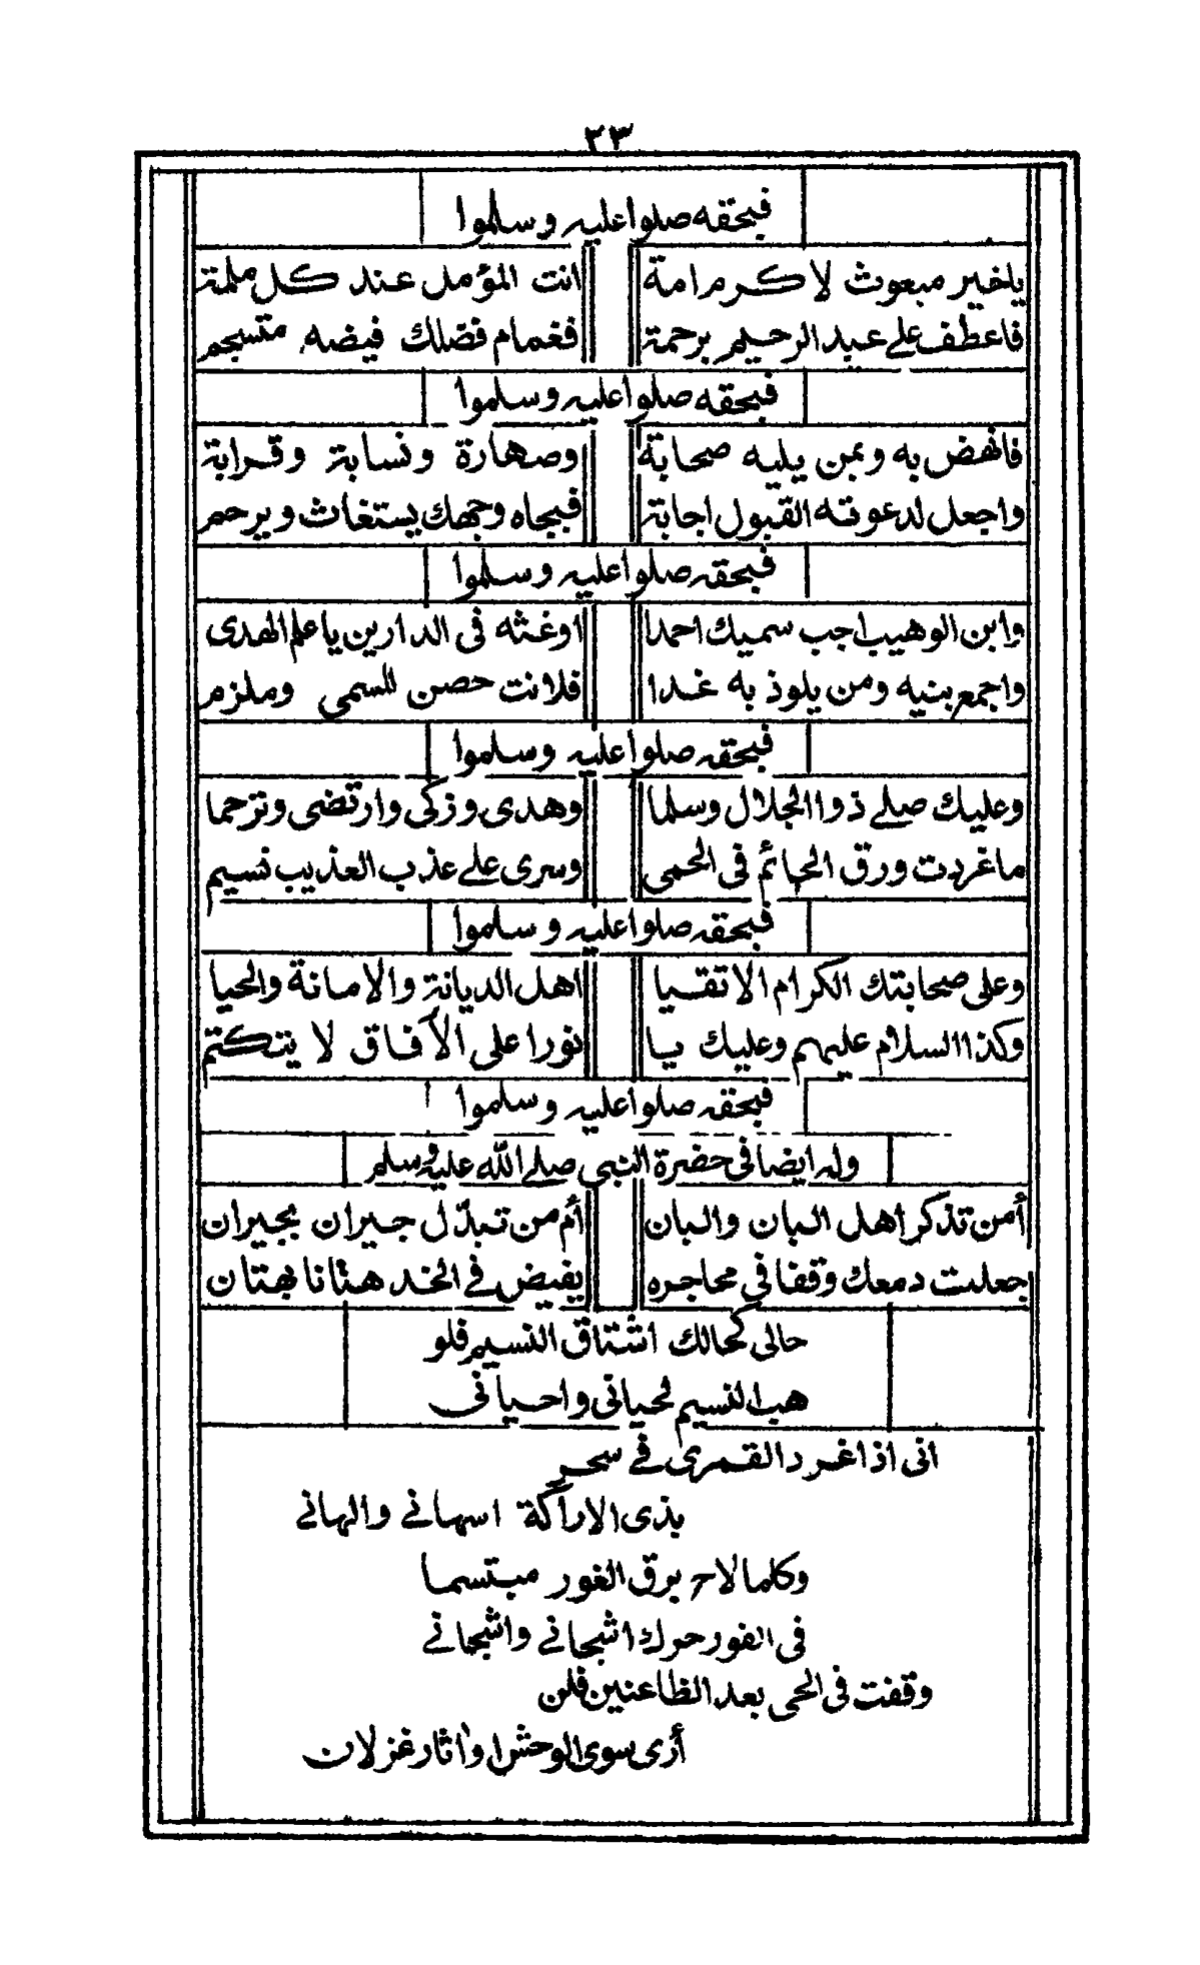 ٣٣
فبحقه صلوا عليه وسلموا
ياخير مبعوث لاكرم امة انت المؤمل عند كل ملمة
فاعطف على عبد الرحيم برحمة فغمام فضلك فيضه متسجم
فبحقه صلوا عليه وسلموا
فانهض به وبمن يليه صحابة وصهارة ونسابة وقرابة
واجعل لدعوته القبول اجابة فبجاه وجهك يستغاث ويرحم
فبحقه صلوا عليه وسلموا
وابن الوهيب اجب سميك احمدا اوغثه فى الدارين ياعلم الهدى
واجمع بنيه ومن يلوذ به غدا فلانت حصن للسمى وملزم
فبحقه صلوا عليه وسلموا
وعليك صلى ذوا الجلال وسلما وهدى وزكى وارتضى وترحما
ماغردت ورق الحمائم فى الحمى وسرى على عذب العذيب نسيم
فبحقه صلوا عليه وسلموا
وعلى صحابتك الكرام الاتقيا اهل الديانة والامانة والحيا
وكذا السلام عليهم وعليك يا نورا على الآفاق لا يتكتم
فبحقه صلوا عليه وسلموا
وله ايضا فى حضرة النبي صلى الله عليه وسلم
أمن تذكر اهل البان والبان أم من تبدّل جيران بجيران
جعلت دمعك وقفا في محاجره يفيض في الخد هتانا بهتان
حالى كحالك اشتاق النسيم فلو
هب النسيم لحيانى واحيانى
انى اذا غرد القمرى في سحر
بذى الاراكة اسهاني والهاني
وكلما لاح برق الغور مبتسما
فى الفور حرك اشجاني واشجاني
وقفت فى الحى بعد الظاعنين فلن
أرى سوى الوحش او اثار غزلان